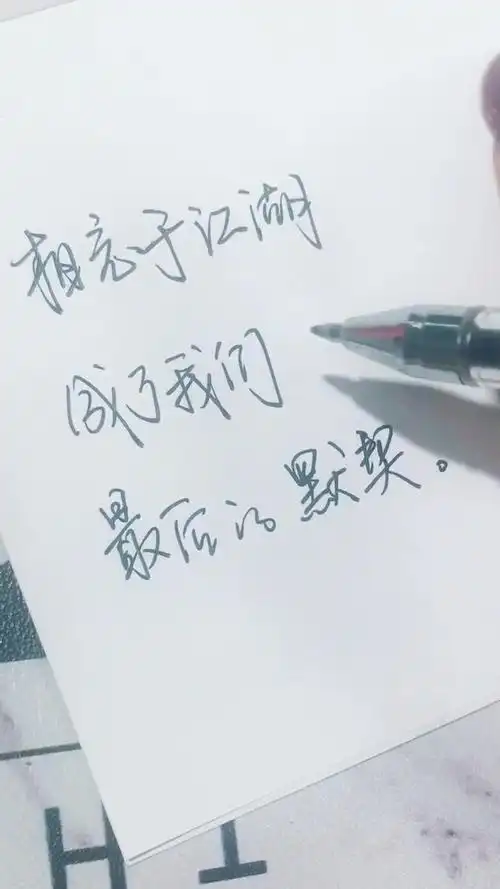 相忘于江湖
成了我们
最后的默契。